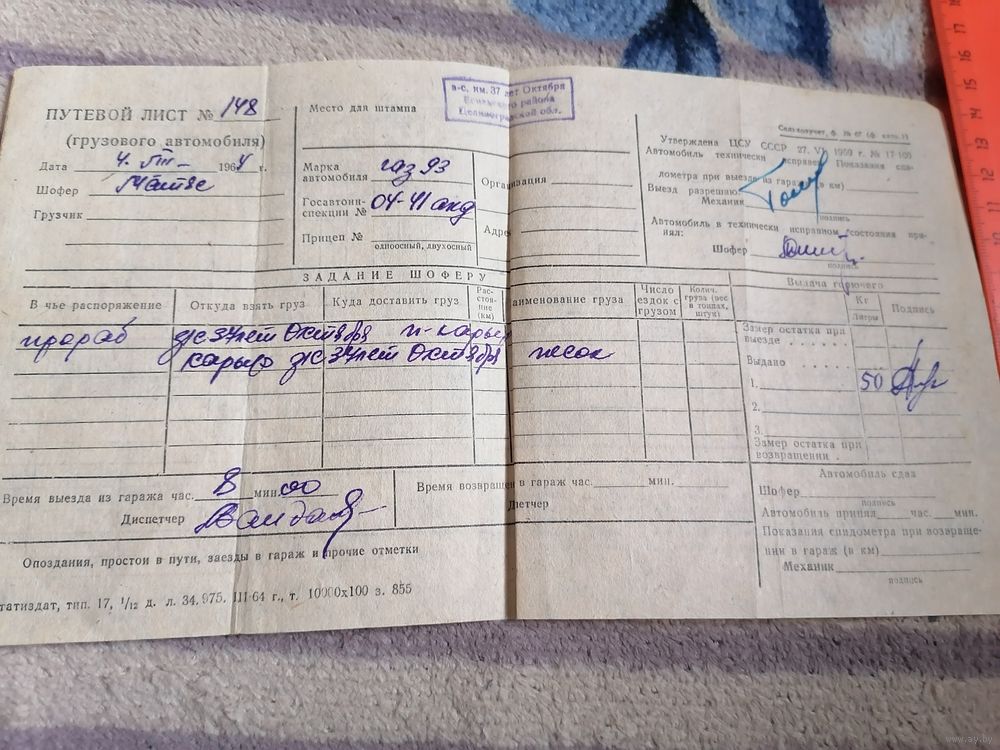 ПУТЕВОЙ ЛИСТ № 148
(грузового автомобиля)
Дата 4. VIII 1964 г.
Шофер
Грузчик
Место для штампа
в-с, км. 37 лет Октября
района
Целиноградской обл.
Марка
автомобиля газ 93
Госавтоин-
спекции № 04-41
Прицеп №
одноосный, двухосный
Организация
Адрес
Сельхозучет, ф. №
Утверждена ЦСУ СССР 27. VI 1960 г. №
Автомобиль технически исправен Показания спи-
дометра при выезде из гаража (в км)
Выезд разрешаю:
Механик
подпись
Автомобиль в технически исправном состоянии при-
нял:
Шофер
подпись
ЗАДАНИЕ ШОФЕРУ
В чье распоряжение
Откуда взять груз
Куда доставить груз
Рас-
стоя-
ние
(км)
аименование груза
Число
ездок с
грузом
Колич.
груза (вес
в тоннах,
штук)
прораб з/с 37 лет Октября п-карьер
карьер з/с 37 лет Октября песок
Выдача горючего
Кг
Литры
Подпись
Замер остатка при
выезде
Выдано
1. 50
2.
3.
Замер остатка при
возвращении
Время выезда из гаража час. 8 мин. 00
Диспетчер
Время возвращен в гараж час. мин.
петчер
Автомобиль сдал
Шофер
подпись
Автомобиль принял час. мин.
Показания спидометра при возвраще-
нии в гараж (в км)
Механик
подпись
Опоздания, простои в пути, заезды в гараж и прочие отметки
татиздат, тип. 17, 1/12 д. л. 34.975. III-64 г., т. 10000х100 з. 855
18
17
16
15
14
13
12
11
www.ay.by